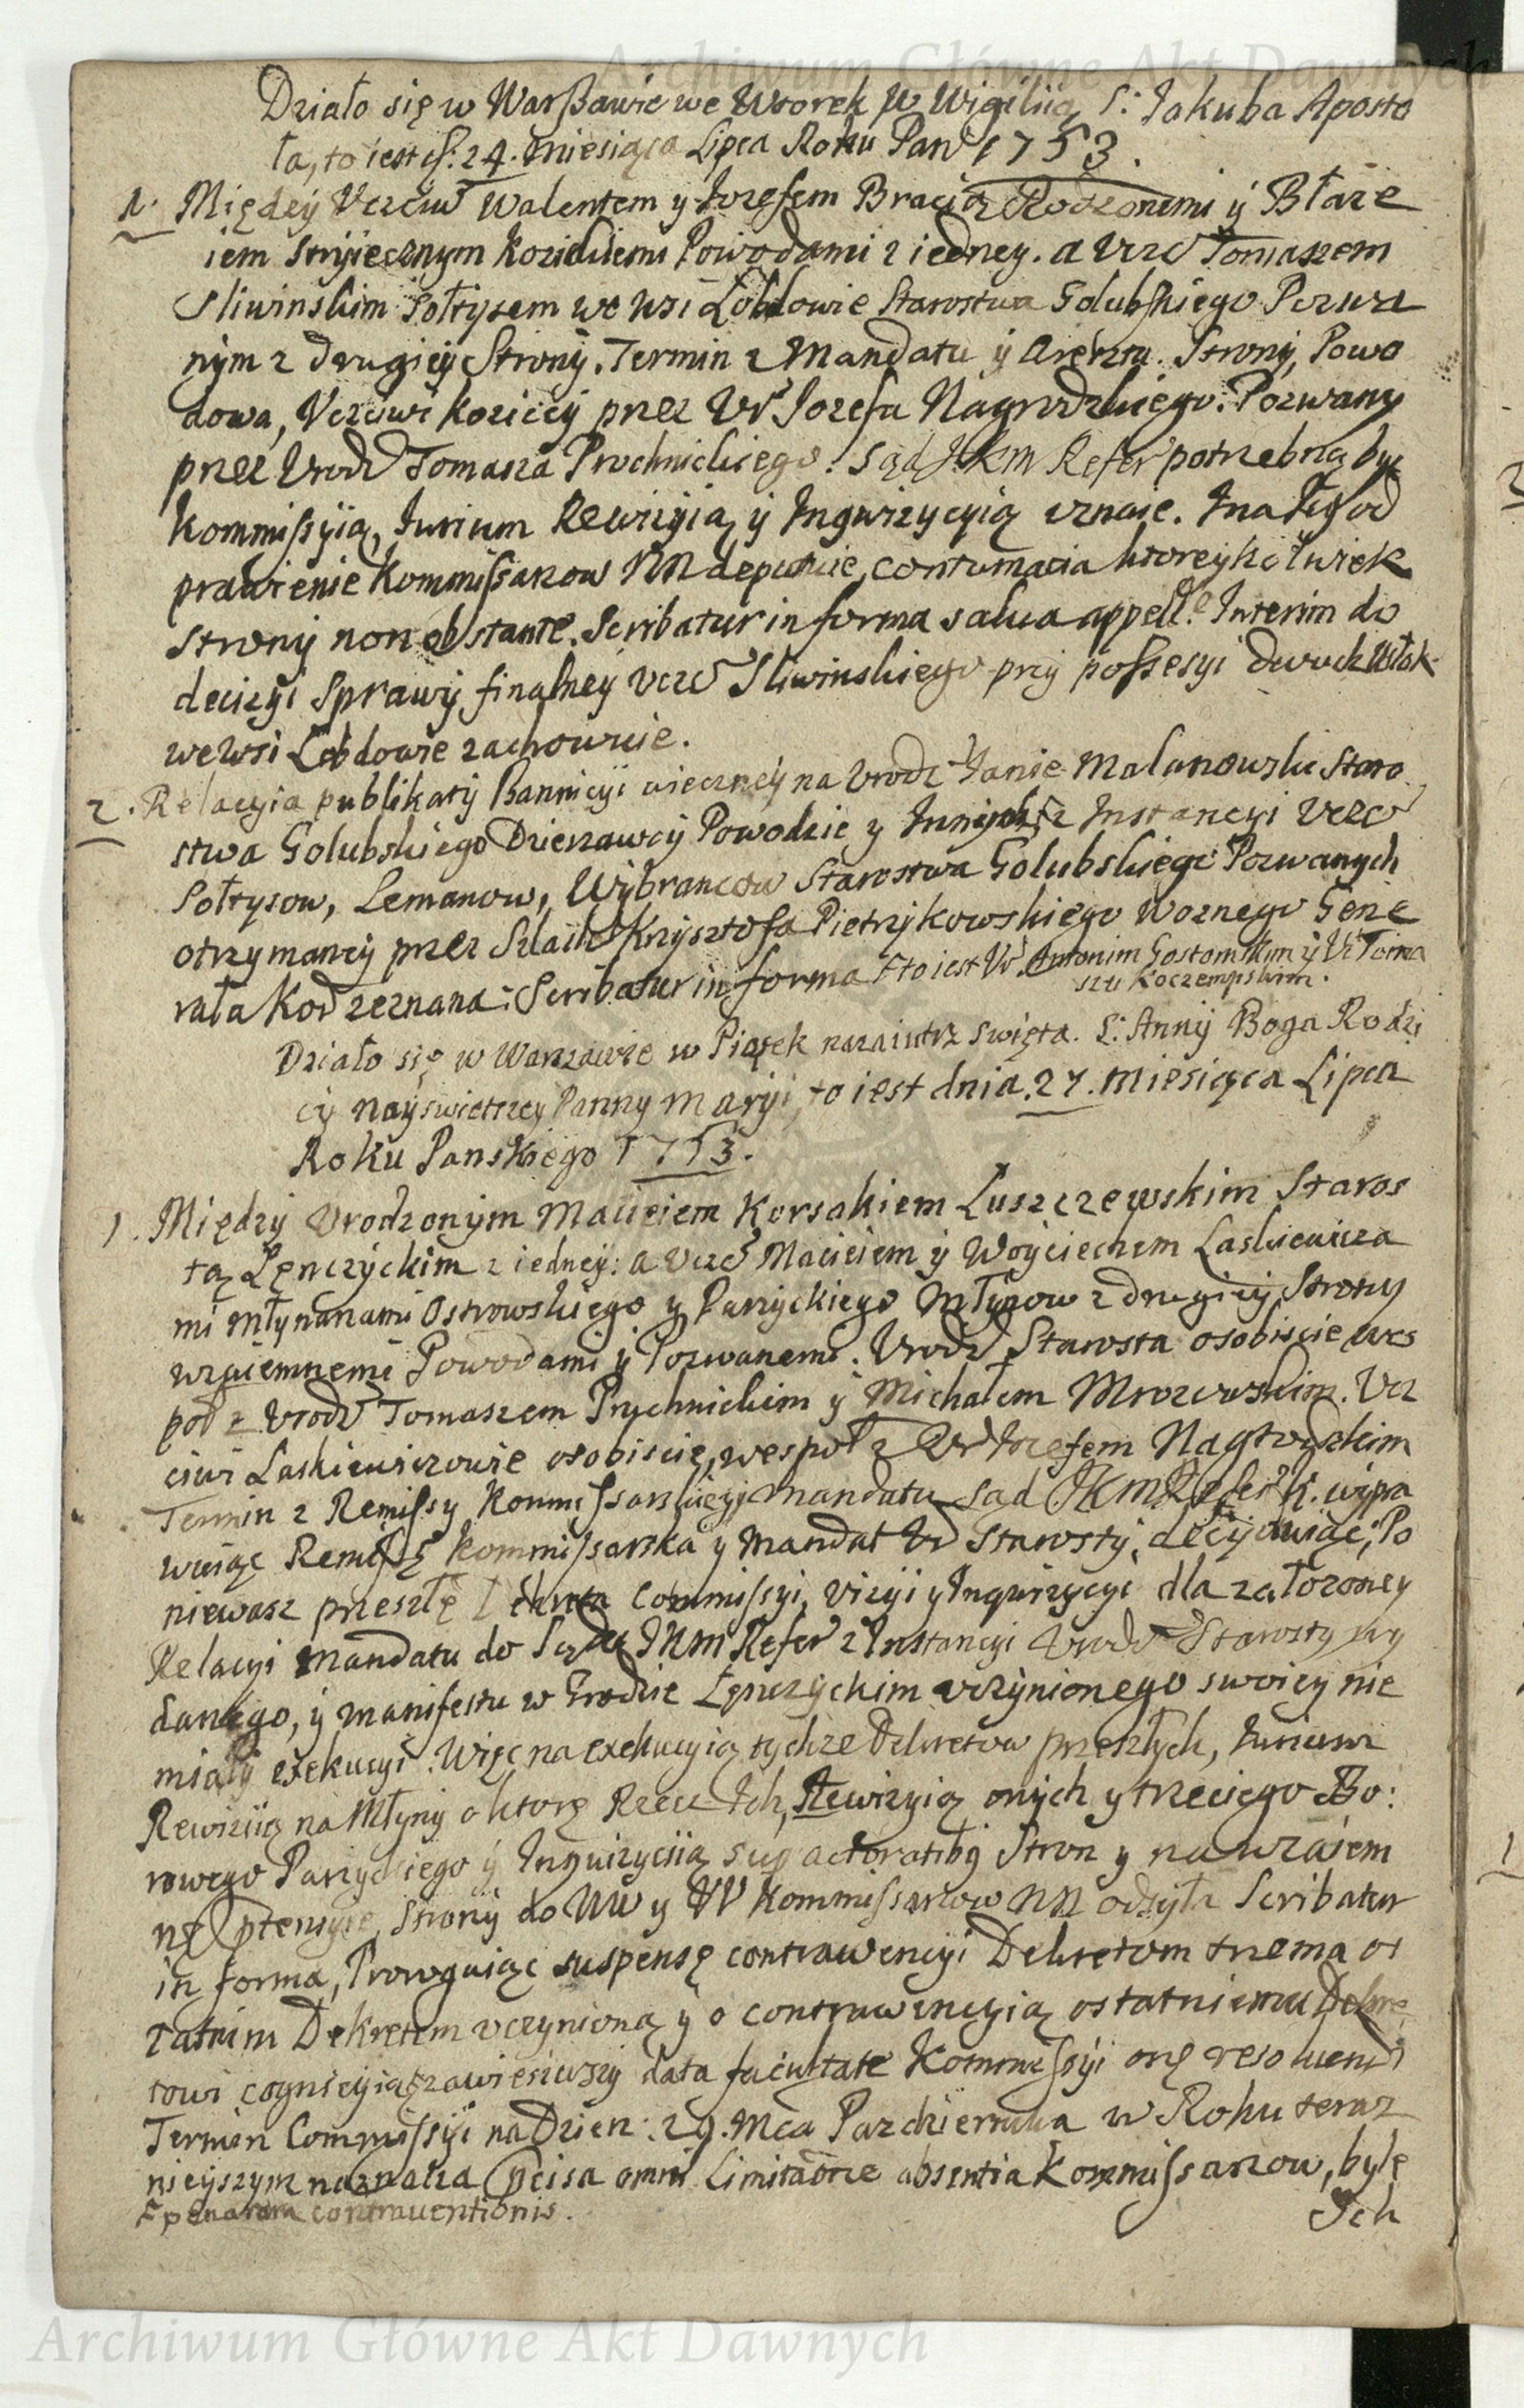 Archiwum Główne Akt Dawnych
Działo się w Warszawie we Wtorek w Wigiliią S: Jakuba Aposto
ła, to iest d: 24. miesiąca Lipca Roku Pań 1753.
1. Między Uczciw Walentem y Jozefem Bracią Rodzonemi y Błaże
iem stryiecznym Kozickiemi Powodami z iedney. a Ucz Tomaszem
Sliwinskim Sołtysem we wsi Łobdowie Starostwa Golubskiego Pozwa
nym z drugiey Strony. Termin z Mandatu y Aresztu. Strony, Powo
dowa, Uczciwi Koziccy przez Ur Jozefa Nagrodzkiego: Pozwany
przez Urodz Tomasza Prochnickiego. Sąd JKM Refer potrzebną być
Kommissyią, Jurium Rewizyią y Inqwizycyią uznaie. Jna tey od
prawienie Kommissarzow NN deputuie, contumacia ktoreykolwiek
strony non obstante. Scribatur in forma salva appelle. Interim do
decizyi sprawy finalney Ucz Sliwinskiego przy possesyi dwuch Włok
we wsi Łobdowie zachowuie.
2. Relacyia publikaty Bannicyi wieczney na Urodz Janie Malanowski Staro
stwa Golubskiego Dzierzawcy Powodzie y Innych z Instancyi Ucz
Sołtysow, Lemanow, Wybrancow Starostwa Golubskiego Pozwanych
otrzymaney przez Szlach Krzysztofa Pietrzykowskiego Woznego Gene
rała Kor zeznana: Scribatur in forma to iest Ur Antonim Gostomskim y Ur Toma
szu Koczempskim.
Działo się w Warszawie w Piątek nazaiutrz swięta. S: Anny Boga Rodzi
cy nayswiętszey Panny Maryi, to iest dnia. 27. miesiąca Lipca
Roku Panskiego 1753.
1. Między Urodzonym Macieiem Korsakiem Łuszczewskim Staros
tą Łęnczyckim z iedney: a Ucz Macieiem y Woyciechem Laskiewicza
mi młynarzami Ostrowskiego y Parzyckiego Młynow z drugiey Strony
wzaiemnemi Powodami y Pozwanemi. Urodz Starosta osobiscie wes
poł z Urodz Tomaszem Prychnickim y Michałem Mrozewskim. Ucz
ciwi Laskiewiczowie osobiscie, wespoł z Ur Jozefem Nagrodzkim
Termin z Remissy Kommissarskiey y mandatu Sąd JKM Refer K. wypra
wuiąc Remissę Kommissarską y Mandat Ur Starosty, decyduiąc; Po
niewasz przeszłe Dekreta Commissyi, Vizyi y Inqwizycyi dla założoney
Relacyi mandatu do Sądu JKM Refer z Instancyi Urodz Starosty wy
danego, y manifestu w Grodzie Łęnczyckim uczynionego swoiey nie
miały exekucyi. Więc na exekucyią tychze Dekretow przeszłych, Jurium
Rewizyią na Młyny o ktore Rzecz Jch, Rewizyią onych y trzeciego Bo:
rowego Parzyckiego y Inquizycyią sup actoratibq Stron y na wzaiem
ne ptensye, Strony do WW y UU Kommissarzow NN odsyła Scribatur
in forma, Proroguiąc suspensę contrawencyi Dekretom trzema os
tatnim Dekretem uczynioną y o contrawencyią ostatniemu Dekre
towi cognicyią zawiesiwszy data facultate Kommissyi onę resolvendi
Termin Commissyi na Dzien: 29. Mca Pazdziernika w Roku teraz
nieyszym naznacza pcisa omni Limitaone absentia Kommissarzow, byle
contraventionis.
Jch
Archiwum Główne Akt Dawnych